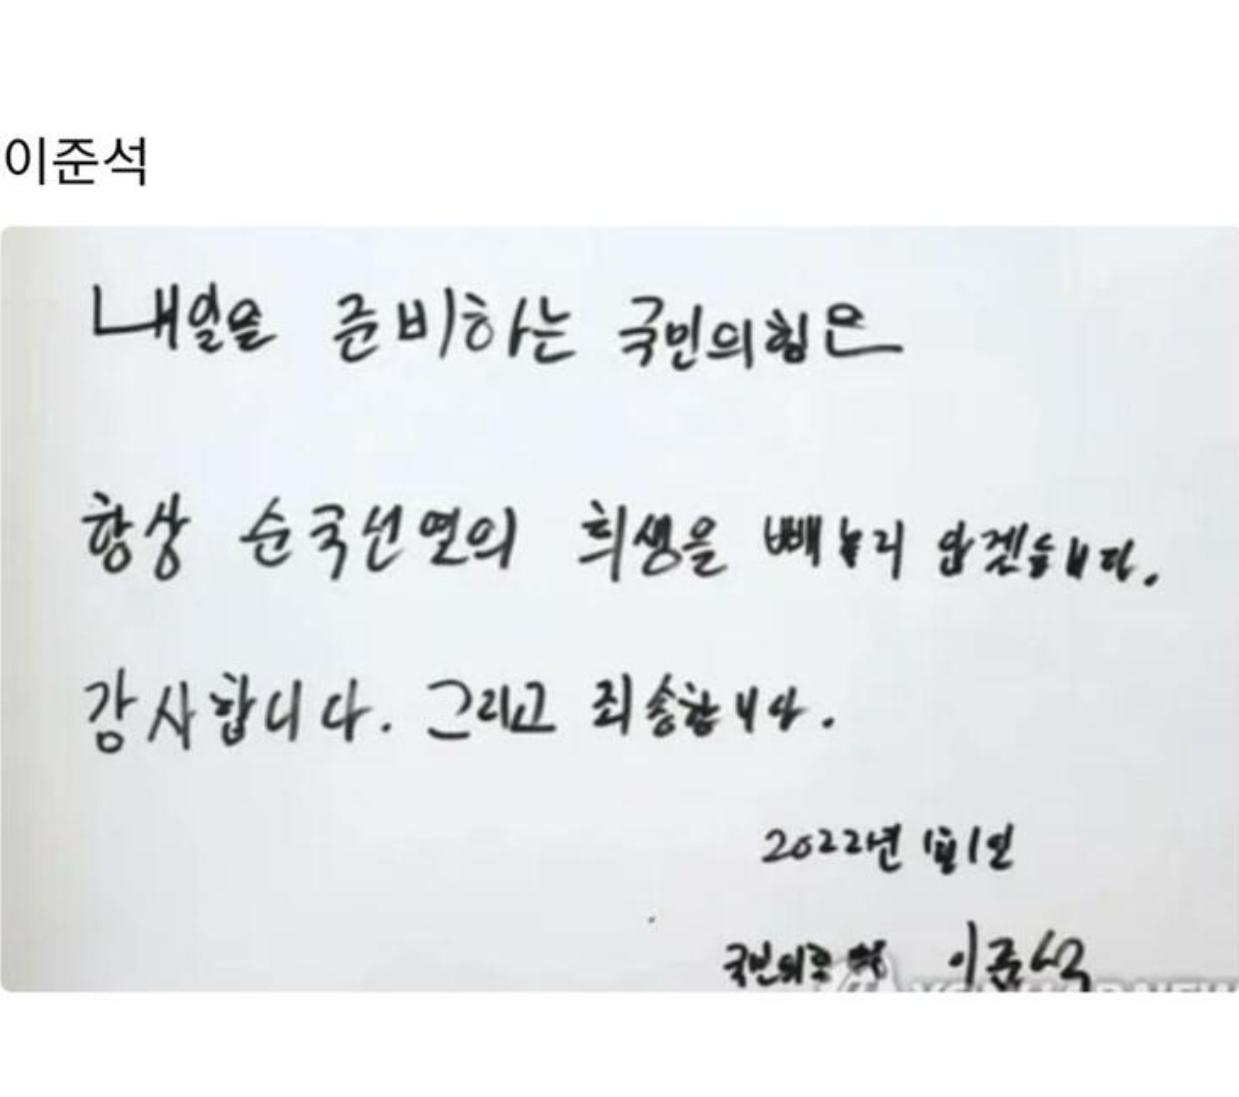 이준석
내일을 준비하는 국민의힘은
항상 순국선열의 희생을 빼놓지 않겠습니다.
감사합니다. 그리고 죄송합니다.
2022년 1월 1일
국민의힘 이준석